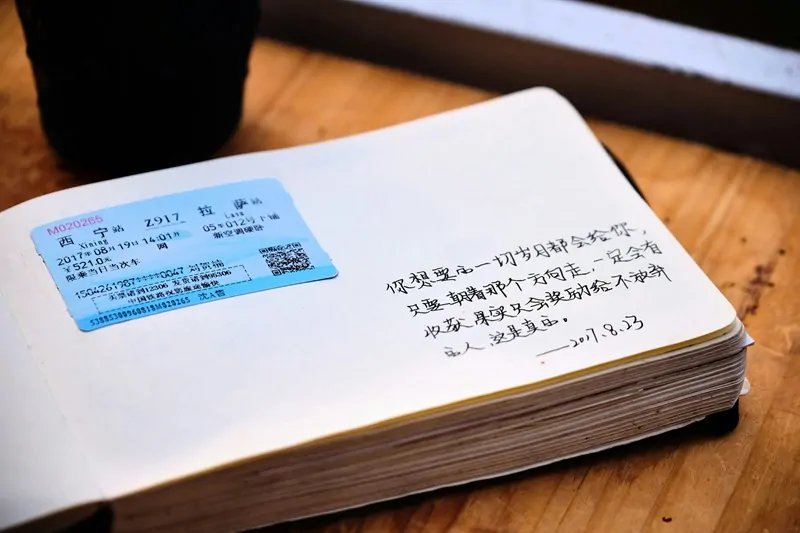 M020265
西宁站 Z917 拉萨站
Xining Lasa
2017年08月19日14:01开 05车012号下铺
¥521.0元 网 新空调硬卧
限乘当日当次车
1504261987****0047
买票请到12306 发货请到95306
中国铁路祝您旅途愉快
53885300960818M020265
你想要的一切岁月都会给你，
只要朝着那个方向走，一定会有
收获 果实只会奖励给不放弃
的人，这是真的。
——2017.8.23